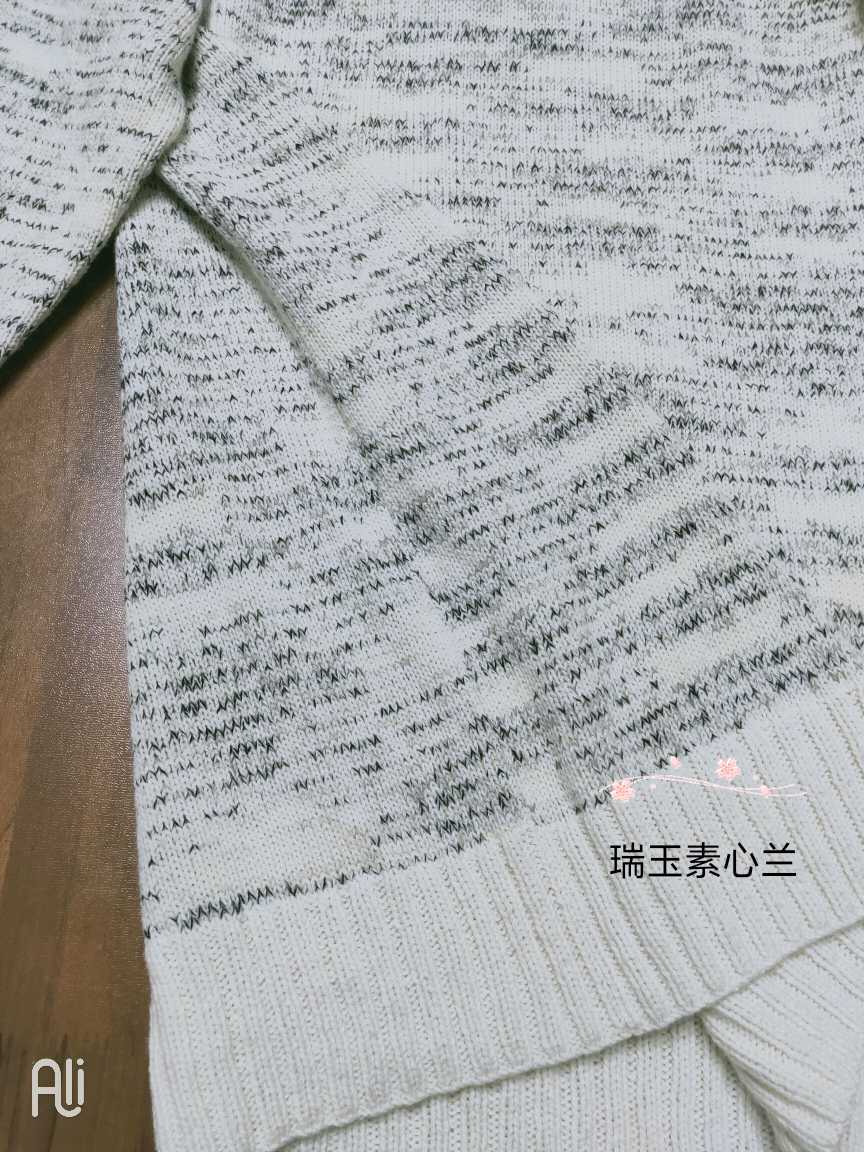 瑞玉素心兰
Ali